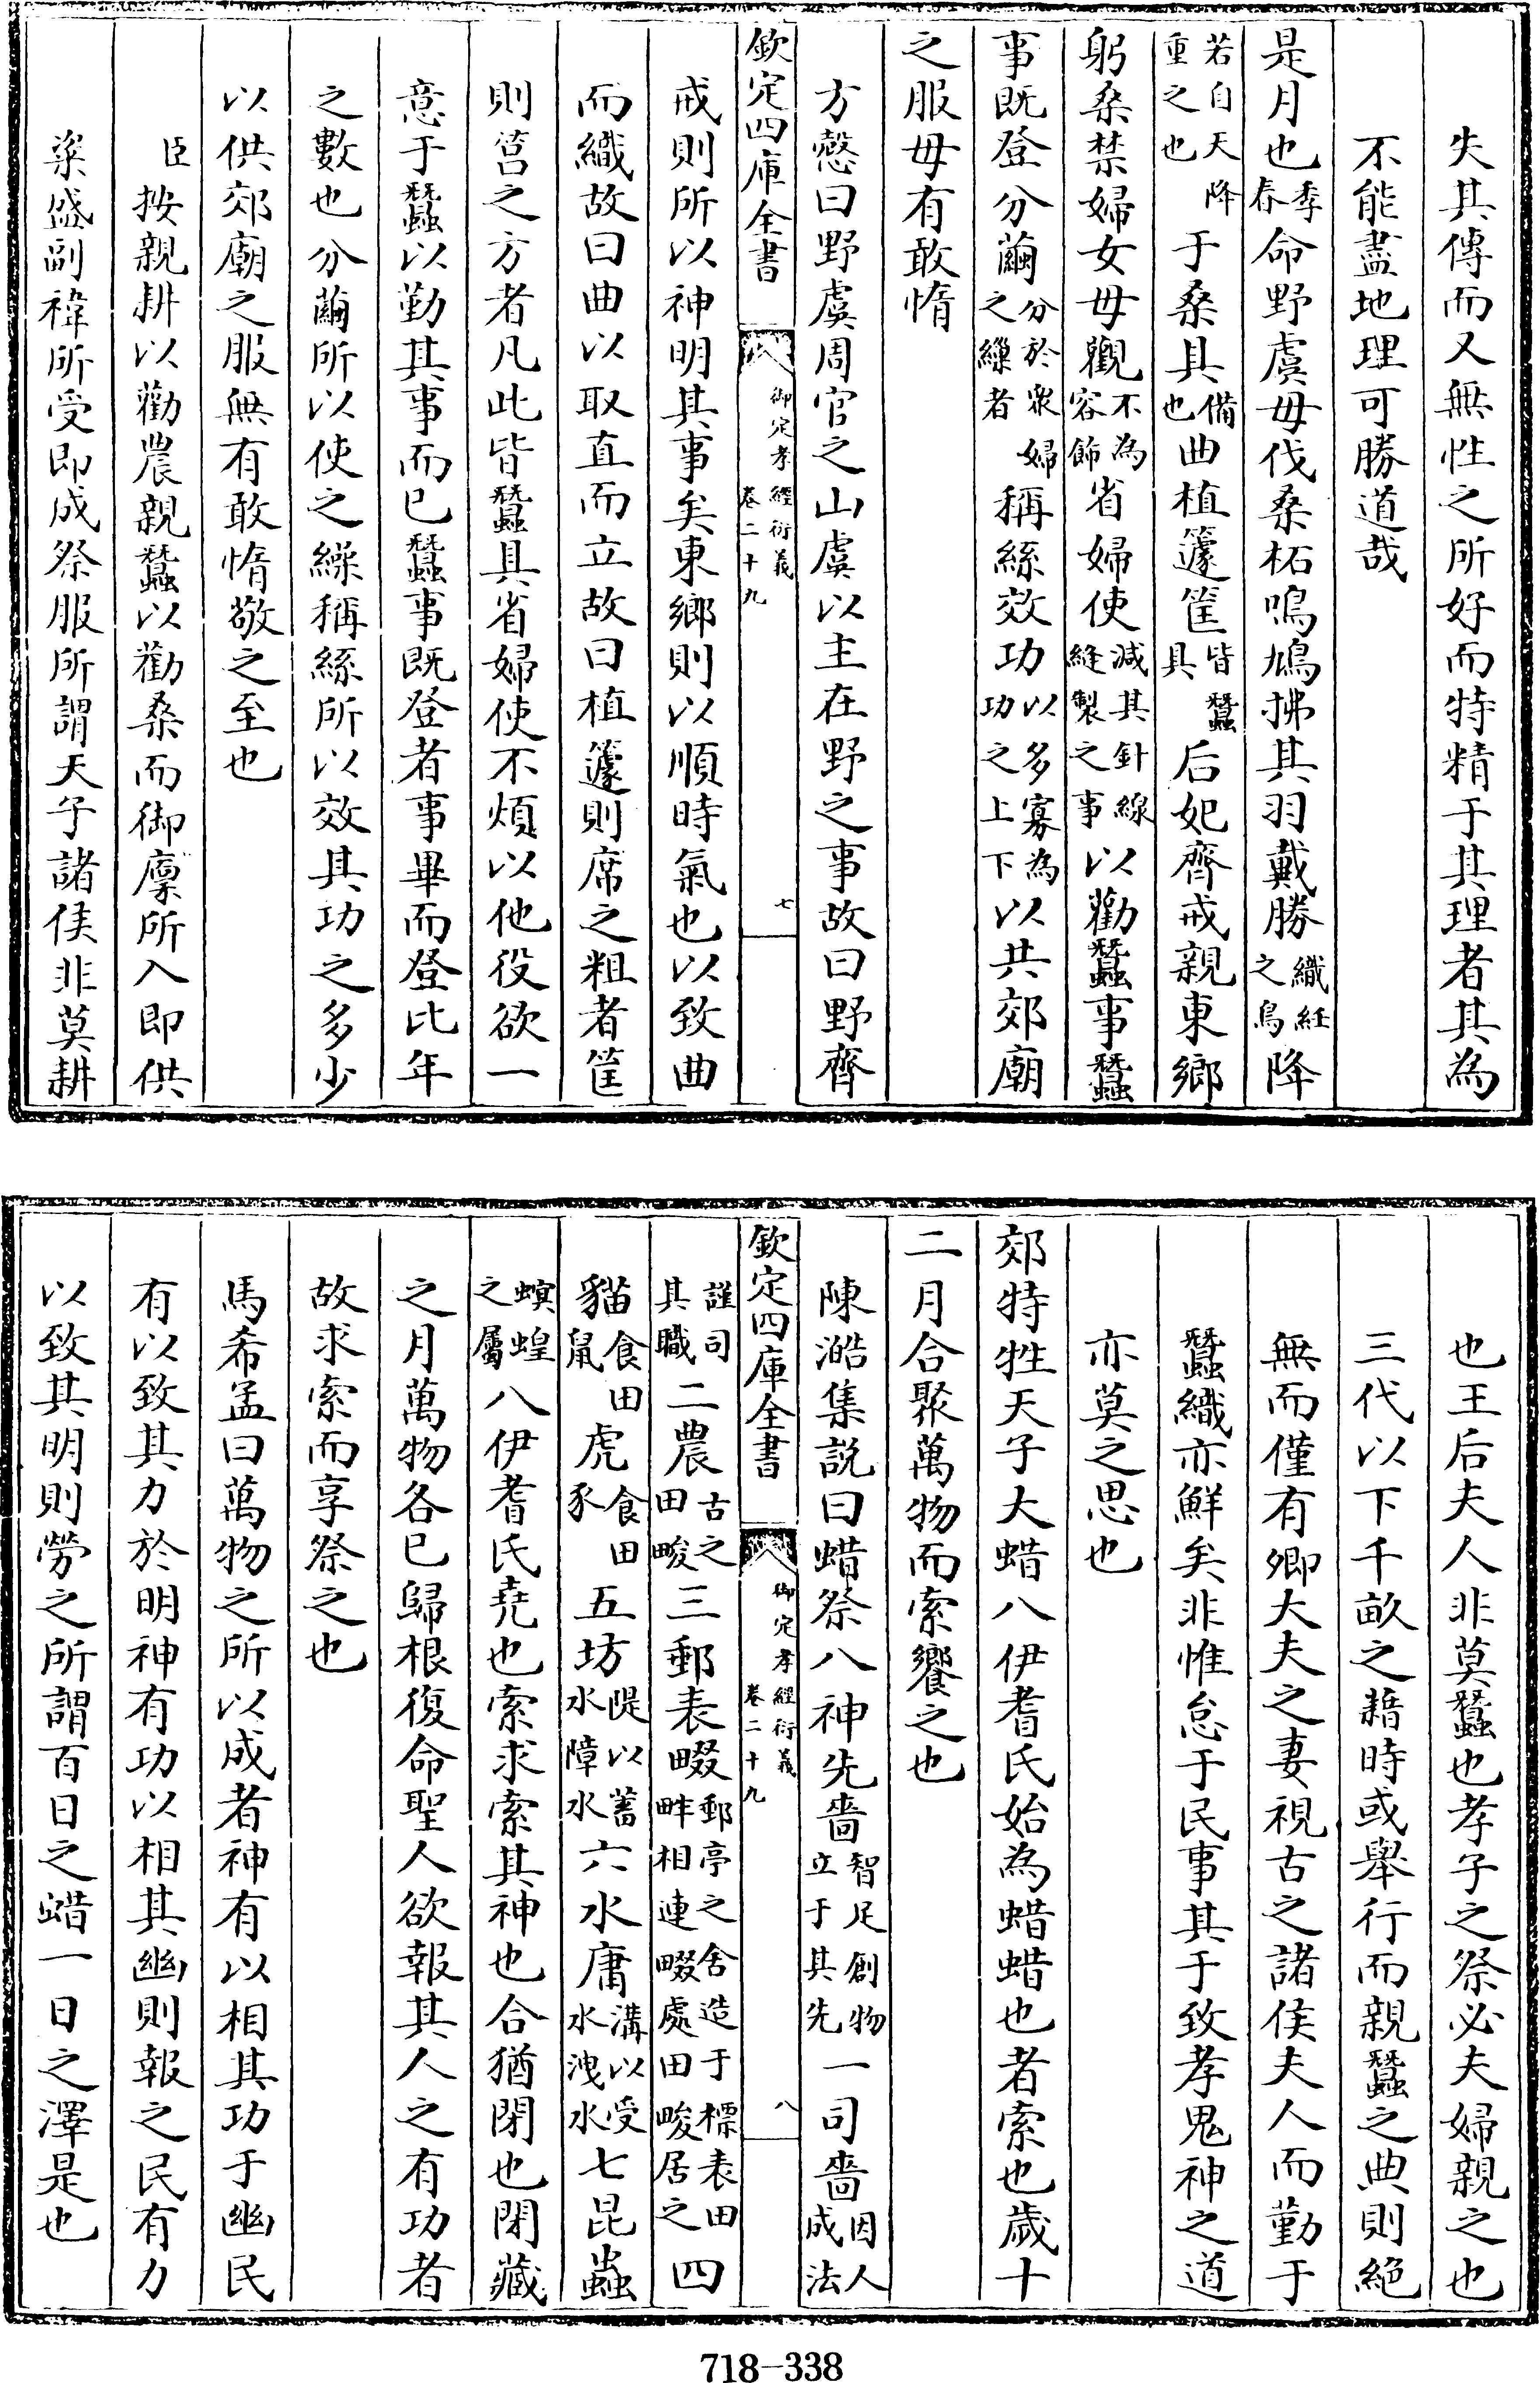 失其傳而又無性之所好而特精于其理者其為
不能盡地理可勝道哉
是月也季春命野虞毋伐桑柘鳴鳩拂其羽戴勝織紝之鳥降
若自天降重之也于桑具備也曲植籧筐皆蠶具后妃齊戒親東鄉
躬桑禁婦女毋觀不為容飾省婦使減其針線縫製之事以勸蠶事蠶
事既登分繭分於衆婦之繅者稱絲效功以多寡為功之上下以共郊廟
之服毋有敢惰
方慤曰野虞周官之山虞以主在野之事故曰野齊
欽定四庫全書
御定孝經衍義
卷二十九
七
戒則所以神明其事矣東鄉則以順時氣也以致曲
而織故曰曲以取直而立故曰植籧則席之粗者筐
則筥之方者凡此皆蠶具省婦使不煩以他役欲一
意于蠶以勤其事而已蠶事既登者事畢而登比年
之數也分繭所以使之繰稱絲所以效其功之多少
以供郊廟之服無有敢惰敬之至也
臣按親耕以勸農親蠶以勸桑而御廩所入即供
粢盛副褘所受即成祭服所謂天子諸侯非莫耕
也王后夫人非莫蠶也孝子之祭必夫婦親之也
三代以下千畝之耤時或舉行而親蠶之典則絕
無而僅有卿大夫之妻視古之諸侯夫人而勤于
蠶織亦鮮矣非惟怠于民事其于致孝鬼神之道
亦莫之思也
郊特牲天子大蜡八伊耆氏始為蜡蜡也者索也歲十
二月合聚萬物而索饗之也
陳澔集説曰蜡祭八神先嗇智足創物立于其先一司嗇因人成法
欽定四庫全書
御定孝經衍義
卷二十九
八
謹司其職二農古之田畯三郵表畷郵亭之舍造于標表田畔相連畷處田畯居之四
貓食田鼠虎食田豕五坊隄以蓄水障水六水庸溝以受水洩水七昆蟲
螟蝗之屬八伊耆氏堯也索求索其神也合猶閉也閉藏
之月萬物各已歸根復命聖人欲報其人之有功者
故求索而享祭之也
馬希孟曰萬物之所以成者神有以相其功于幽民
有以致其力於明神有功以相其幽則報之民有力
以致其明則勞之所謂百日之蜡一日之澤是也
718-338